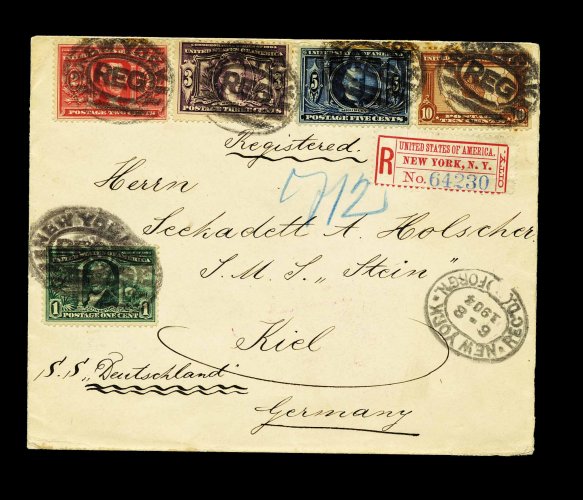 NEW YORK
REG.
UNITED STATES OF AMERICA
POSTAGE TWO CENTS
2
3
POSTAGE THREE CENTS
5
5
POSTAGE FIVE CENTS
10
POSTAGE
TEN CENTS
Registered.
R
UNITED STATES OF AMERICA.
NEW YORK, N. Y.
No. 64230
712
Herrn
Seekadett A. Holscher.
S. M. S. „Stein"
NEW YORK
REG.
1
1
POSTAGE ONE CENT
NEW YORK REG'D. FORGN.
6-8
1904
Kiel
S.S. „Deutschland"
Germany